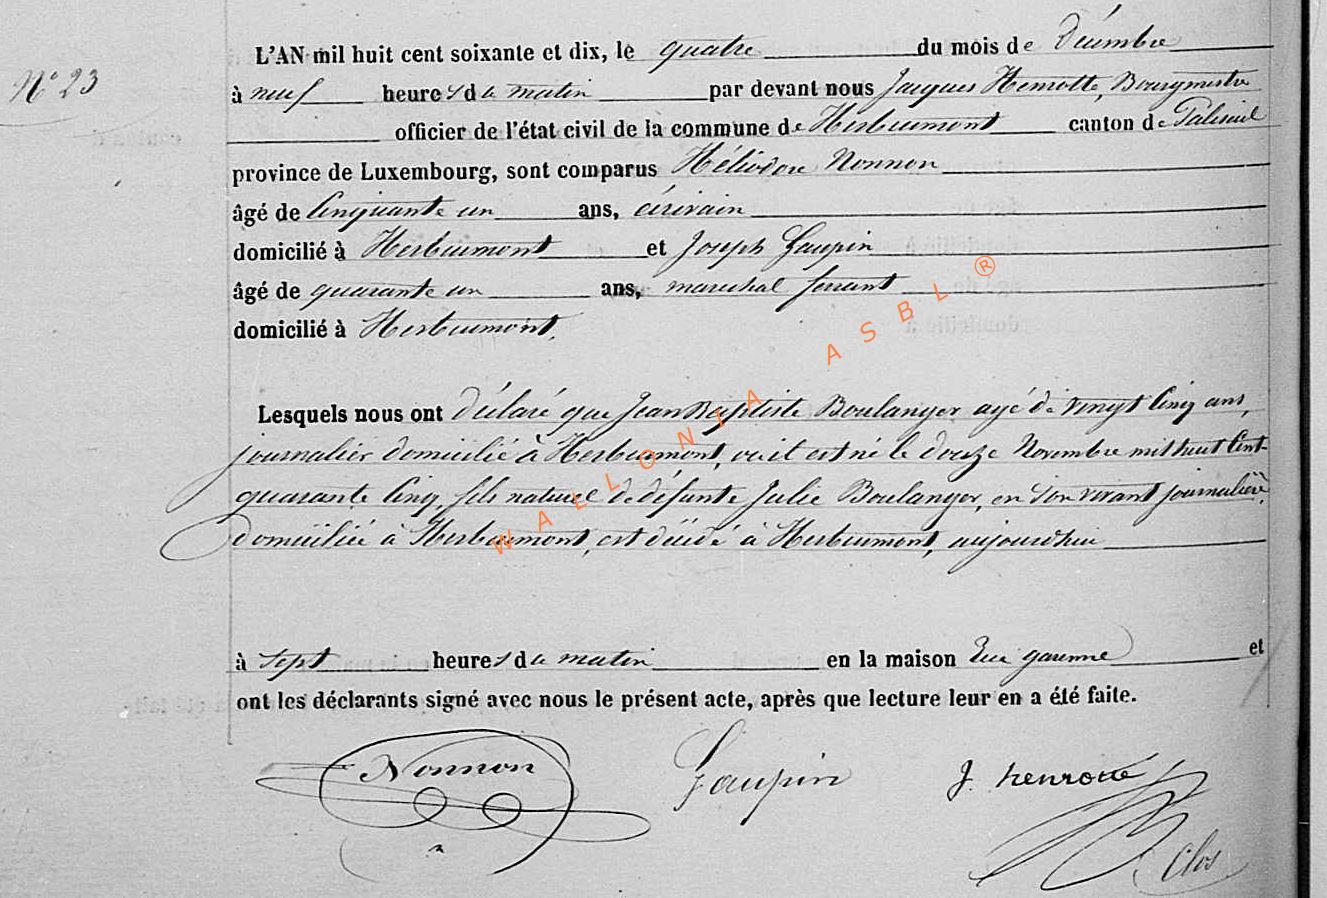 N° 23
L'AN mil huit cent soixante et dix, le quatre du mois de Décembre
à neuf heures du matin par devant nous Jacques Henrotte, Bourgmestre
officier de l'état civil de la commune de Herbeumont canton de Paliseul
province de Luxembourg, sont comparus Héliodore Nonnon
âgé de Cinquante un ans, écrivain
domicilié à Herbeumont et Joseph Gaupin
âgé de quarante un ans, maréchal ferrant
domicilié à Herbeumont,
Lesquels nous ont déclaré que Jean Baptiste Boulanger agé de vingt Cinq ans,
journalier domicilié à Herbeumont, où il est né le douze Novembre mil huit Cent
quarante Cinq, fils naturel de défunte Julie Boulanger, en son vivant journalière
domiciliée à Herbeumont, est décédé à Herbeumont, aujourd'hui
à sept heures du matin en la maison Rue garenne et
ont les déclarants signé avec nous le présent acte, après que lecture leur en a été faite.
Nonnon Gaupin J. henrotte
Clos
WALLONIA ASBL ®